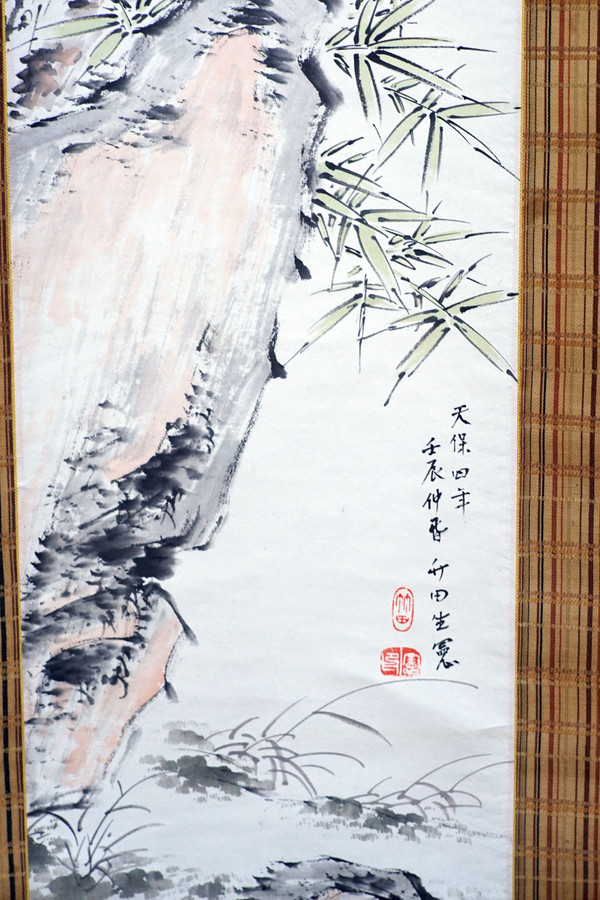 天保四年
壬辰仲春 竹田生憲
竹田